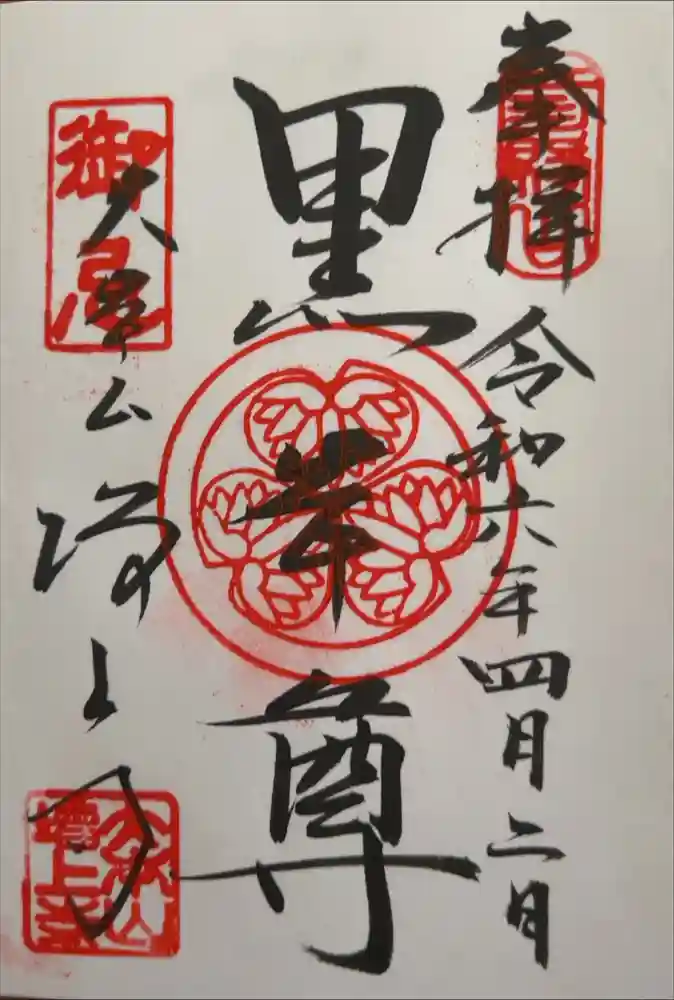 奉拝
令和六年四月二日
黒本尊
大本山
増上寺
御忌
大本山
増上寺